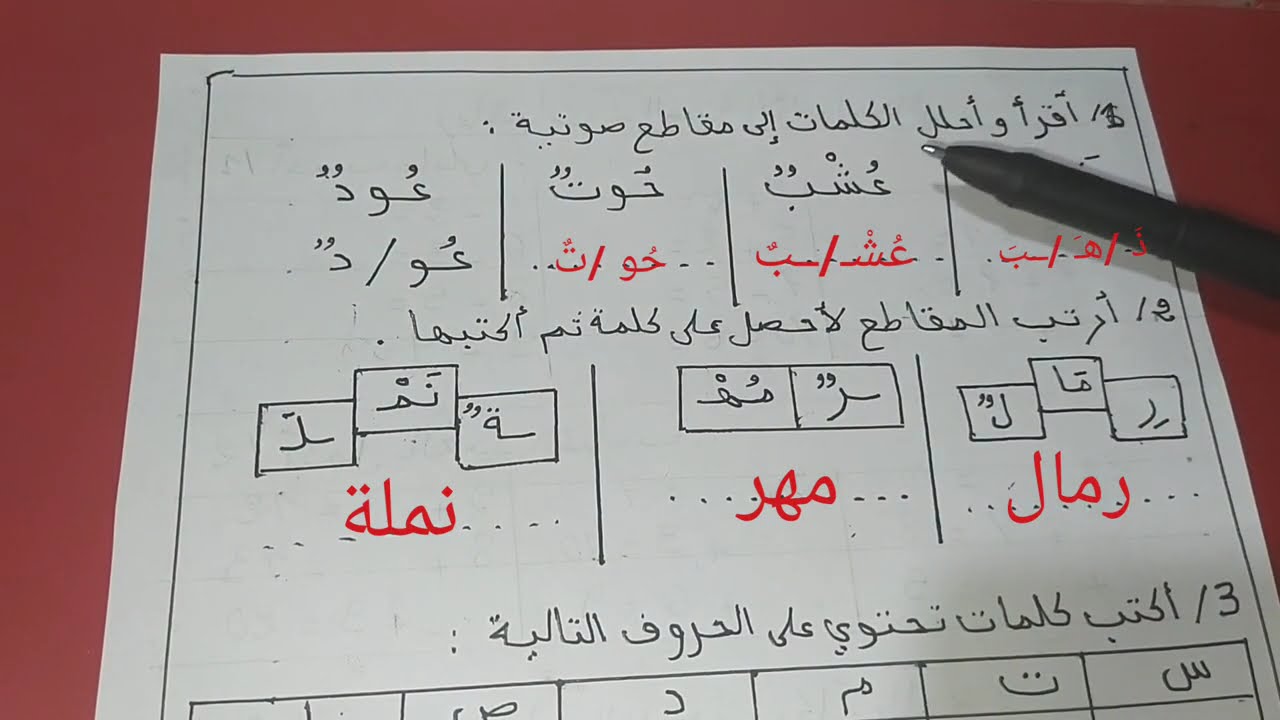 1/ أقرأ و أحلل الكلمات إلى مقاطع صوتية :
عُشْبٌ حُوتٌ عُودٌ
ذَ/هَـ/ـبَ عُشْـ/ـبٌ حُو/تٌ عُو/دٌ
2/ أرتب المقاطع لأحصل على كلمة ثم أكتبها .
رِ مَا لٌ ـرٌ مُهْـ ـةٌ نَمْـ ـلَـ
رمال مهر نملة
3/ أكتب كلمات تحتوي على الحروف التالية :
س ت م د ص